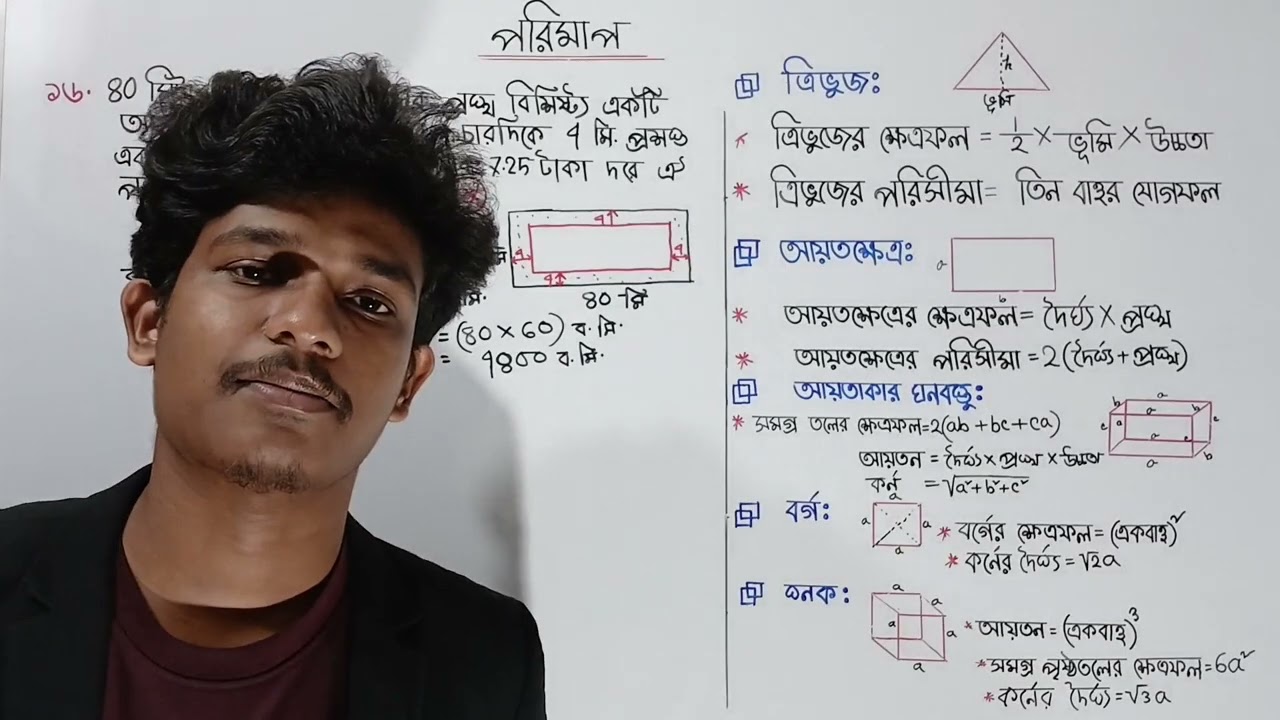 পরিমাপ
১৬. 80 মি
প্রস্থ বিশিষ্ট একটি
চারদিকে 4 মি. প্রশস্ত
7.25 টাকা দরে ঐ
4
4
4
4
80 মি
মি.
= (80 × 60) ব. মি.
= 4800 ব. মি.
ত্রিভুজঃ
h
ভূমি
* ত্রিভুজের ক্ষেত্রফল = 1/2 × ভূমি × উচ্চতা
* ত্রিভুজের পরিসীমা = তিন বাহুর যোগফল
আয়তক্ষেত্রঃ
a
b
* আয়তক্ষেত্রের ক্ষেত্রফল = দৈর্ঘ্য × প্রস্থ
* আয়তক্ষেত্রের পরিসীমা = 2 (দৈর্ঘ্য + প্রস্থ)
আয়তাকার ঘনবস্তুঃ
* সমগ্র তলের ক্ষেত্রফল = 2(ab + bc + ca)
আয়তন = দৈর্ঘ্য × প্রস্থ × উচ্চতা
কর্ন = √a²+b²+c²
a
b
a
b
c
a
a
c
c
a
b
বর্গঃ
a
a
a
* বর্গের ক্ষেত্রফল = (একবাহু)²
* কর্নের দৈর্ঘ্য = √2a
ঘনক:
a
a
a
a
a
* আয়তন = (একবাহু)³
* সমগ্র পৃষ্ঠতলের ক্ষেত্রফল = 6a²
* কর্নের দৈর্ঘ্য = √3a